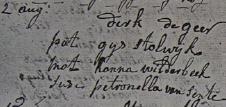 2 aug:
dirk de geer
pat gijs stolwijk
mat hanna wittebeek
sus: petronella van